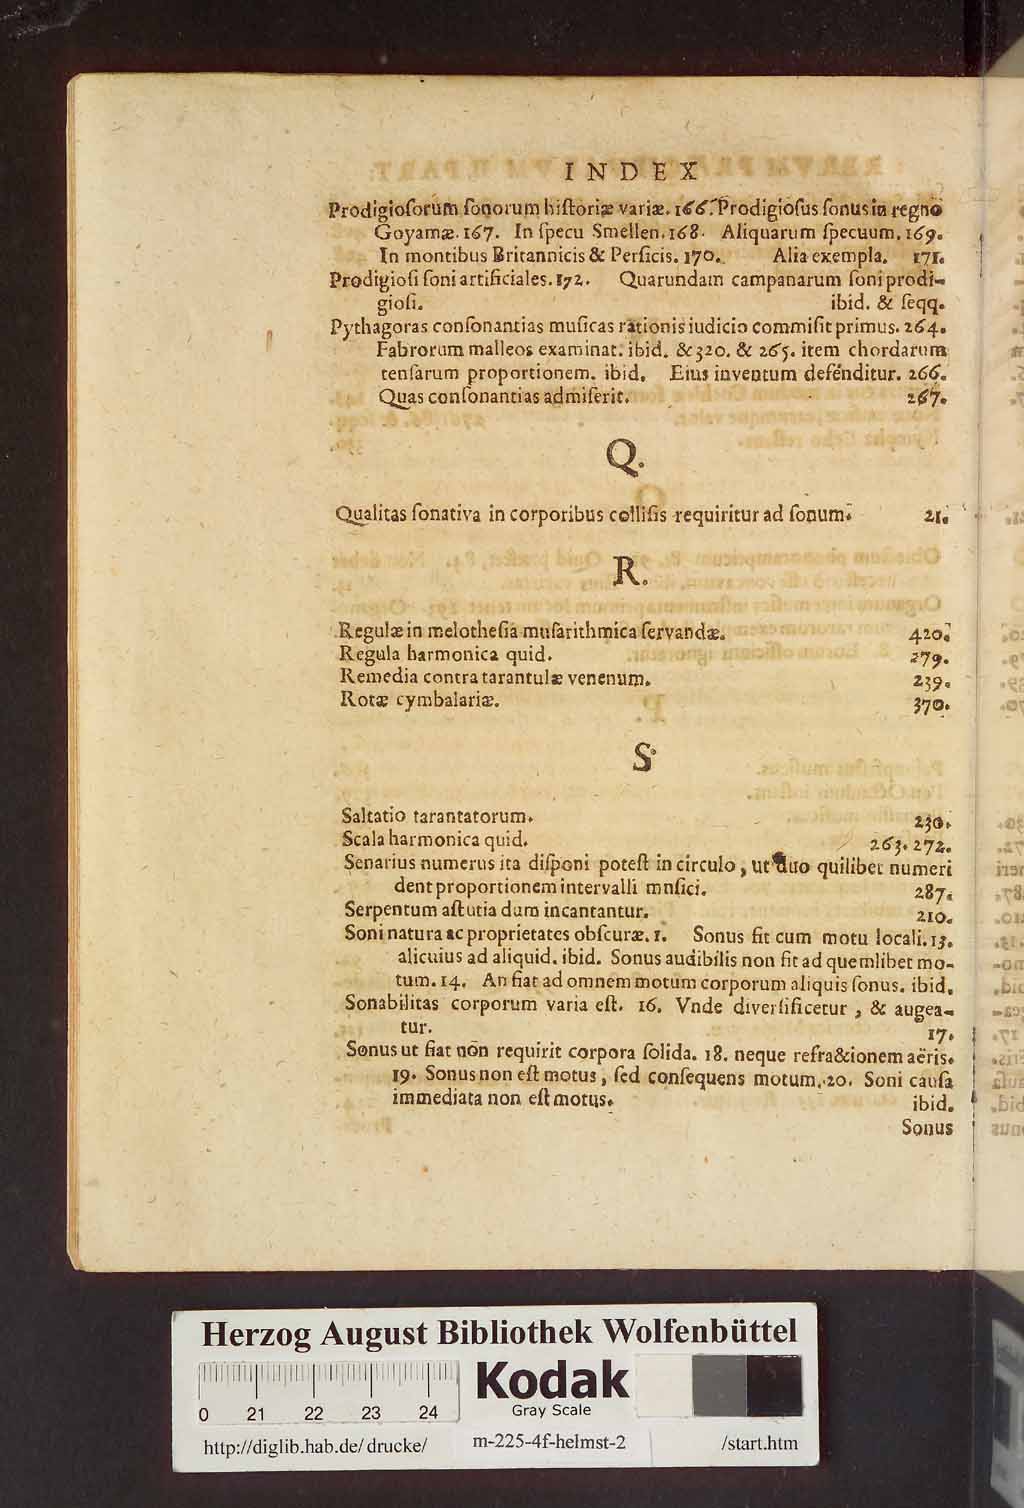 INDEX
Prodigioſorum ſonorum hiſtoriæ variæ. 166. Prodigioſus ſonus in regno
Goyamæ. 167. In ſpecu Smellen. 168. Aliquarum ſpecuum. 169.
In montibus Britannicis & Perſicis. 170. Alia exempla. 171.
Prodigioſi ſoni artificiales. 172. Quarundam campanarum ſoni prodi-
gioſi. ibid. & ſeqq.
Pythagoras conſonantias muſicas rationis iudicio commiſit primus. 264.
Fabrorum malleos examinat. ibid. & 320. & 265. item chordarum
tenſarum proportionem. ibid. Eius inventum defenditur. 266.
Quas conſonantias admiſerit. 267.
Q.
Qualitas ſonativa in corporibus colliſis requiritur ad ſonum. 21.
R.
Regulæ in melotheſia muſarithmica ſervandæ. 420.
Regula harmonica quid. 279.
Remedia contra tarantulæ venenum. 239.
Rotæ cymbalariæ. 370.
S.
Saltatio tarantatorum. 230.
Scala harmonica quid. 263. 272.
Senarius numerus ita diſponi poteſt in circulo, ut duo quilibet numeri
dent proportionem intervalli mnſici. 287.
Serpentum aſtutia dum incantantur. 210.
Soni natura ac proprietates obſcuræ. 1. Sonus fit cum motu locali. 13.
alicuius ad aliquid. ibid. Sonus audibilis non fit ad quemlibet mo-
tum. 14. An fiat ad omnem motum corporum aliquis ſonus. ibid.
Sonabilitas corporum varia eſt. 16. Vnde diverſificetur, & augea-
tur. 17.
Sonus ut fiat non requirit corpora ſolida. 18. neque refractionem aëris.
19. Sonus non eſt motus, ſed conſequens motum. 20. Soni cauſa
immediata non eſt motus. ibid.
Sonus
Herzog August Bibliothek Wolfenbüttel
Kodak
Gray Scale
0 21 22 23 24
http://diglib.hab.de/drucke/ m-225-4f-helmst-2 /start.htm